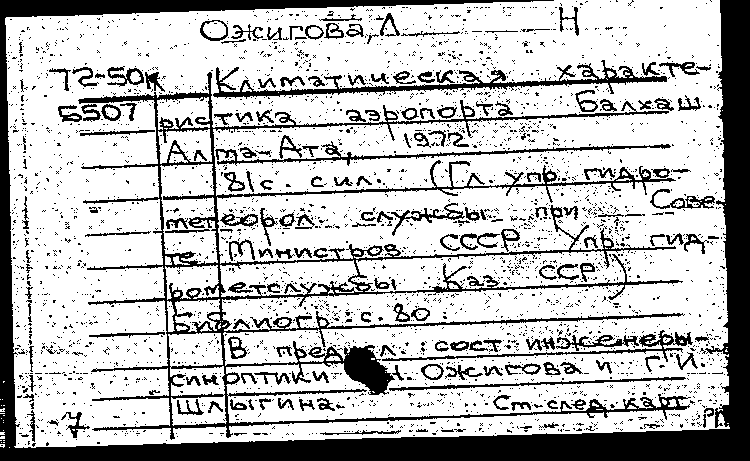 Ожигова, Л Н
72-50к Климатическая характе-
5507 ристика аэропорта Балхаш.
Алма-Ата, 1972.
81с. с ил. (Гл. упр. гидро-
метеорол. службы при Сове-
те Министров СССР Упр. гид-
рометслужбы Каз. ССР)
Библиогр.: с. 80.
В предисл.: сост. инженеры-
синоптики Н. Ожигова и Г. И.
Шлыгина. См. след. карт.